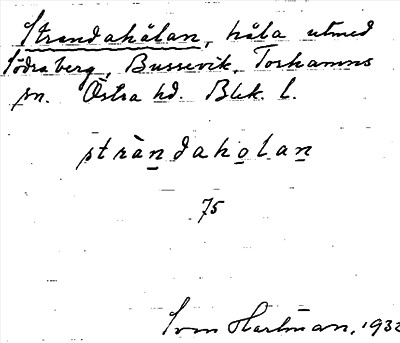 Strandahålan, håla utmed
Södraberg, Bussevik, Torhamns
sn. Östra hd. Blek. l.
stràndaholan
75
Sven Hartman, 1932